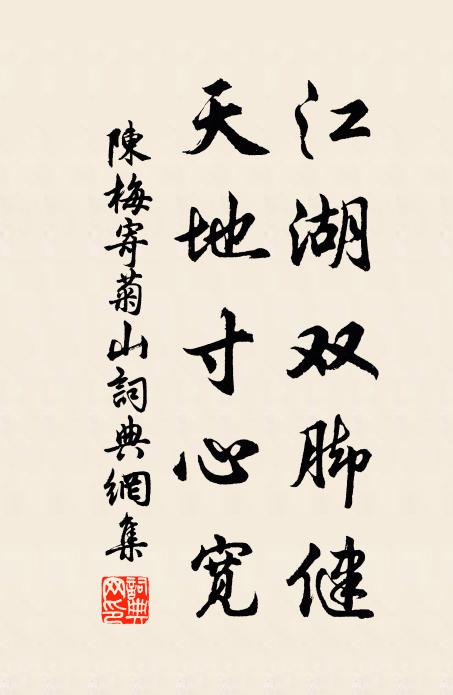 江湖双脚健
天地寸心寬
陳梅寄菊山詞典網集
詞典
网印